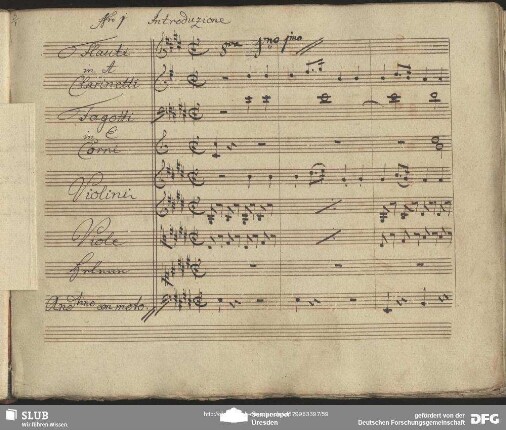 No 1 Introduzione
Flauti
in A
Clarinetti
Fagotti
in E
Corni
Violini
Viole
And.tino con moto
SLUB
Wir führen Wissen.
Semperoper
Dresden
gefördert von der
Deutschen Forschungsgemeinschaft
DFG